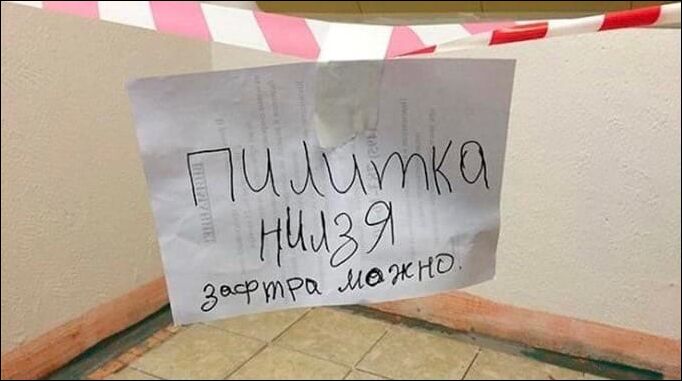 ПИЛИТКА
НИЛЗЯ
зафтра можно.